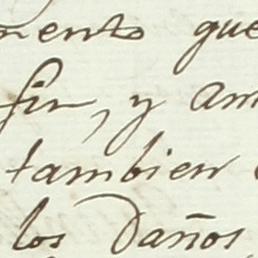 mento que
fin, y am
tambien
los Daños